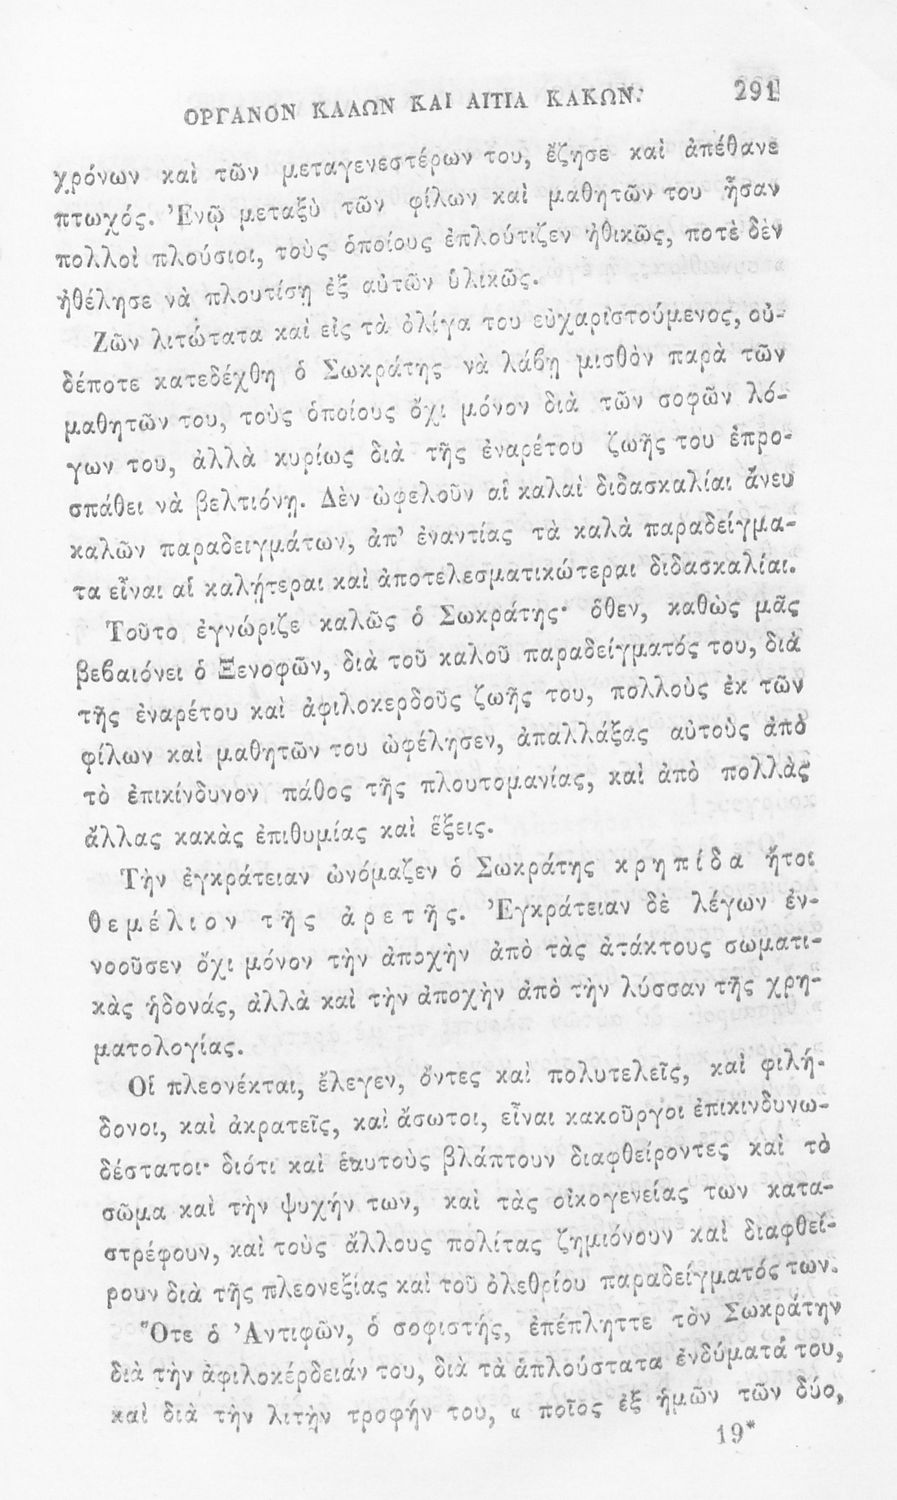 ΟΡΓΑΝΟΝ ΚΑΛΩΝ ΚΑΙ ΑΙΤΙΑ ΚΑΚΩΝ. 291
χρόνων καὶ τῶν μεταγενεστέρων του, ἔζησε καὶ ἀπέθανε
πτωχός. Ἐνῷ μεταξὺ τῶν φίλων καὶ μαθητῶν του ἦσαν
πολλοὶ πλούσιοι, τοὺς ὁποίους ἐπλούτιζεν ἠθικῶς, ποτὲ δὲν
ἠθέλησε νὰ πλουτίσῃ ἐξ αὐτῶν ὑλικῶς.
Ζῶν λιτώτατα καὶ εἰς τὰ ὀλίγα του εὐχαριστούμενος, οὐ-
δέποτε κατεδέχθη ὁ Σωκράτης νὰ λάβῃ μισθὸν παρὰ τῶν
μαθητῶν του, τοὺς ὁποίους ὄχι μόνον διὰ τῶν σοφῶν λό-
γων του, ἀλλὰ κυρίως διὰ τῆς ἐναρέτου ζωῆς του ἐπρο-
σπάθει νὰ βελτιόνῃ. Δὲν ὠφελοῦν αἱ καλαὶ διδασκαλίαι ἄνευ
καλῶν παραδειγμάτων, ἀπ’ ἐναντίας τὰ καλὰ παραδείγμα-
τα εἶναι αἱ καλήτεραι καὶ ἀποτελεσματικώτεραι διδασκαλίαι.
Τοῦτο ἐγνώριζε καλῶς ὁ Σωκράτης· ὅθεν, καθὼς μᾶς
βεβαιόνει ὁ Ξενοφῶν, διὰ τοῦ καλοῦ παραδείγματός του, διὰ
τῆς ἐναρέτου καὶ ἀφιλοκερδοῦς ζωῆς του, πολλοὺς ἐκ τῶν
φίλων καὶ μαθητῶν του ὠφέλησεν, ἀπαλλάξας αὐτοὺς ἀπὸ
τὸ ἐπικίνδυνον πάθος τῆς πλουτομανίας, καὶ ἀπὸ πολλὰς
ἄλλας κακὰς ἐπιθυμίας καὶ ἕξεις.
Τὴν ἐγκράτειαν ὠνόμαζεν ὁ Σωκράτης κρηπίδα ἤτοι
θεμέλιον τῆς ἀρετῆς. Ἐγκράτειαν δὲ λέγων ἐν-
νοοῦσεν ὄχι μόνον τὴν ἀποχὴν ἀπὸ τὰς ἀτάκτους σωματι-
κὰς ἡδονάς, ἀλλὰ καὶ τὴν ἀποχὴν ἀπὸ τὴν λύσσαν τῆς χρη-
ματολογίας.
Οἱ πλεονέκται, ἔλεγεν, ὄντες καὶ πολυτελεῖς, καὶ φιλή-
δονοι, καὶ ἀκρατεῖς, καὶ ἄσωτοι, εἶναι κακοῦργοι ἐπικινδυνω-
δέστατοι· διότι καὶ ἑαυτοὺς βλάπτουν διαφθείροντες καὶ τὸ
σῶμα καὶ τὴν ψυχήν των, καὶ τὰς οἰκογενείας των κατα-
στρέφουν, καὶ τοὺς ἄλλους πολίτας ζημιόνουν καὶ διαφθεί-
ρουν διὰ τῆς πλεονεξίας καὶ τοῦ ὀλεθρίου παραδείγματός των.
Ὅτε ὁ Ἀντιφῶν, ὁ σοφιστής, ἐπέπληττε τὸν Σωκράτην
διὰ τὴν ἀφιλοκέρδειάν του, διὰ τὰ ἁπλούστατα ἐνδύματά του,
καὶ διὰ τὴν λιτὴν τροφήν του, « ποῖος ἐξ ἡμῶν τῶν δύο,
19*